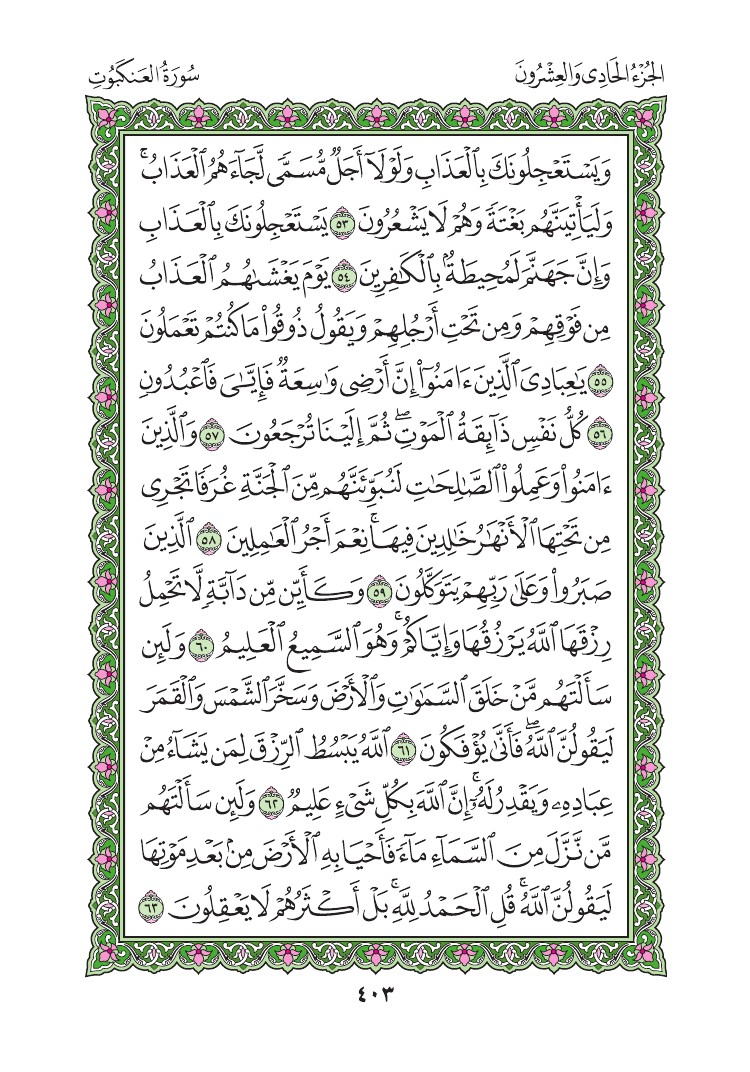 الجزء الحادي والعشرون
سورة العنكبوت
وَيَسْتَعْجِلُونَكَ بِٱلْعَذَابِ وَلَوْلَآ أَجَلٌ مُّسَمًّى لَّجَآءَهُمُ ٱلْعَذَابُۚ
وَلَيَأْتِيَنَّهُم بَغْتَةً وَهُمْ لَا يَشْعُرُونَ ٥٣ يَسْتَعْجِلُونَكَ بِٱلْعَذَابِ
وَإِنَّ جَهَنَّمَ لَمُحِيطَةٌۢ بِٱلْكَٰفِرِينَ ٥٤ يَوْمَ يَغْشَىٰهُمُ ٱلْعَذَابُ
مِن فَوْقِهِمْ وَمِن تَحْتِ أَرْجُلِهِمْ وَيَقُولُ ذُوقُوا۟ مَا كُنتُمْ تَعْمَلُونَ
٥٥ يَٰعِبَادِىَ ٱلَّذِينَ ءَامَنُوٓا۟ إِنَّ أَرْضِى وَٰسِعَةٌ فَإِيَّٰىَ فَٱعْبُدُونِ
٥٦ كُلُّ نَفْسٍ ذَآئِقَةُ ٱلْمَوْتِۖ ثُمَّ إِلَيْنَا تُرْجَعُونَ ٥٧ وَٱلَّذِينَ
ءَامَنُوا۟ وَعَمِلُوا۟ ٱلصَّٰلِحَٰتِ لَنُبَوِّئَنَّهُم مِّنَ ٱلْجَنَّةِ غُرَفًا تَجْرِى
مِن تَحْتِهَا ٱلْأَنْهَٰرُ خَٰلِدِينَ فِيهَاۚ نِعْمَ أَجْرُ ٱلْعَٰمِلِينَ ٥٨ ٱلَّذِينَ
صَبَرُوا۟ وَعَلَىٰ رَبِّهِمْ يَتَوَكَّلُونَ ٥٩ وَكَأَيِّن مِّن دَآبَّةٍ لَّا تَحْمِلُ
رِزْقَهَا ٱللَّهُ يَرْزُقُهَا وَإِيَّاكُمْۚ وَهُوَ ٱلسَّمِيعُ ٱلْعَلِيمُ ٦٠ وَلَئِن
سَأَلْتَهُم مَّنْ خَلَقَ ٱلسَّمَٰوَٰتِ وَٱلْأَرْضَ وَسَخَّرَ ٱلشَّمْسَ وَٱلْقَمَرَ
لَيَقُولُنَّ ٱللَّهُۖ فَأَنَّىٰ يُؤْفَكُونَ ٦١ ٱللَّهُ يَبْسُطُ ٱلرِّزْقَ لِمَن يَشَآءُ مِنْ
عِبَادِهِۦ وَيَقْدِرُ لَهُۥٓۚ إِنَّ ٱللَّهَ بِكُلِّ شَىْءٍ عَلِيمٌ ٦٢ وَلَئِن سَأَلْتَهُم
مَّن نَّزَّلَ مِنَ ٱلسَّمَآءِ مَآءً فَأَحْيَا بِهِ ٱلْأَرْضَ مِنۢ بَعْدِ مَوْتِهَا
لَيَقُولُنَّ ٱللَّهُۚ قُلِ ٱلْحَمْدُ لِلَّهِۚ بَلْ أَكْثَرُهُمْ لَا يَعْقِلُونَ ٦٣
٤٠٣